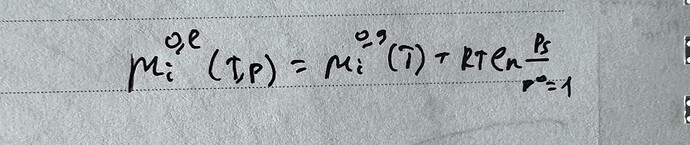 μᵢ^{o,l} (T,P) = μᵢ^{o,g} (T) + RT ln Ps / P° = 1